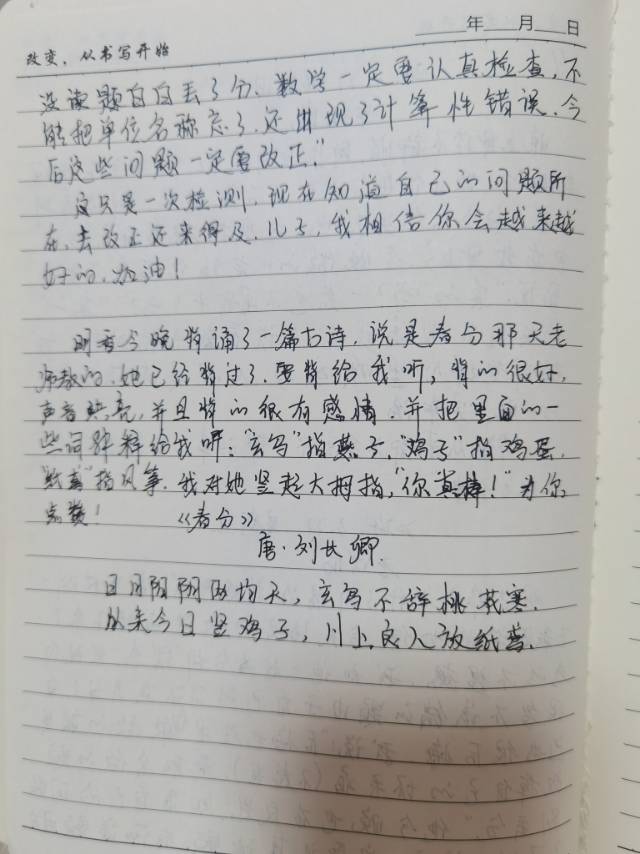 年 月 日
改变，从书写开始
没读题白白丢了分。数学一定要认真检查，不
能把单位名称忘了，还出现了计算性错误，今
后这些问题一定要改正。”
这只是一次检测，现在知道自己的问题所
在，去改正还来得及，儿子，我相信你会越来越
好的，加油！
明香今晚背诵了一篇古诗，说是春分那天老
师教的，她已经背过了，要背给我听，背的很好，
声音洪亮，并且背的很有感情，并把里面的一
些词解释给我听：“玄鸟”指燕子，“鸡子”指鸡蛋，
“纸鸢”指风筝。我对她竖起大拇指，“你真棒！”为你
点赞！
《春分》
唐·刘长卿
日月阴阳两均天，玄鸟不辞桃花寒。
从来今日竖鸡子，川上良人放纸鸢。